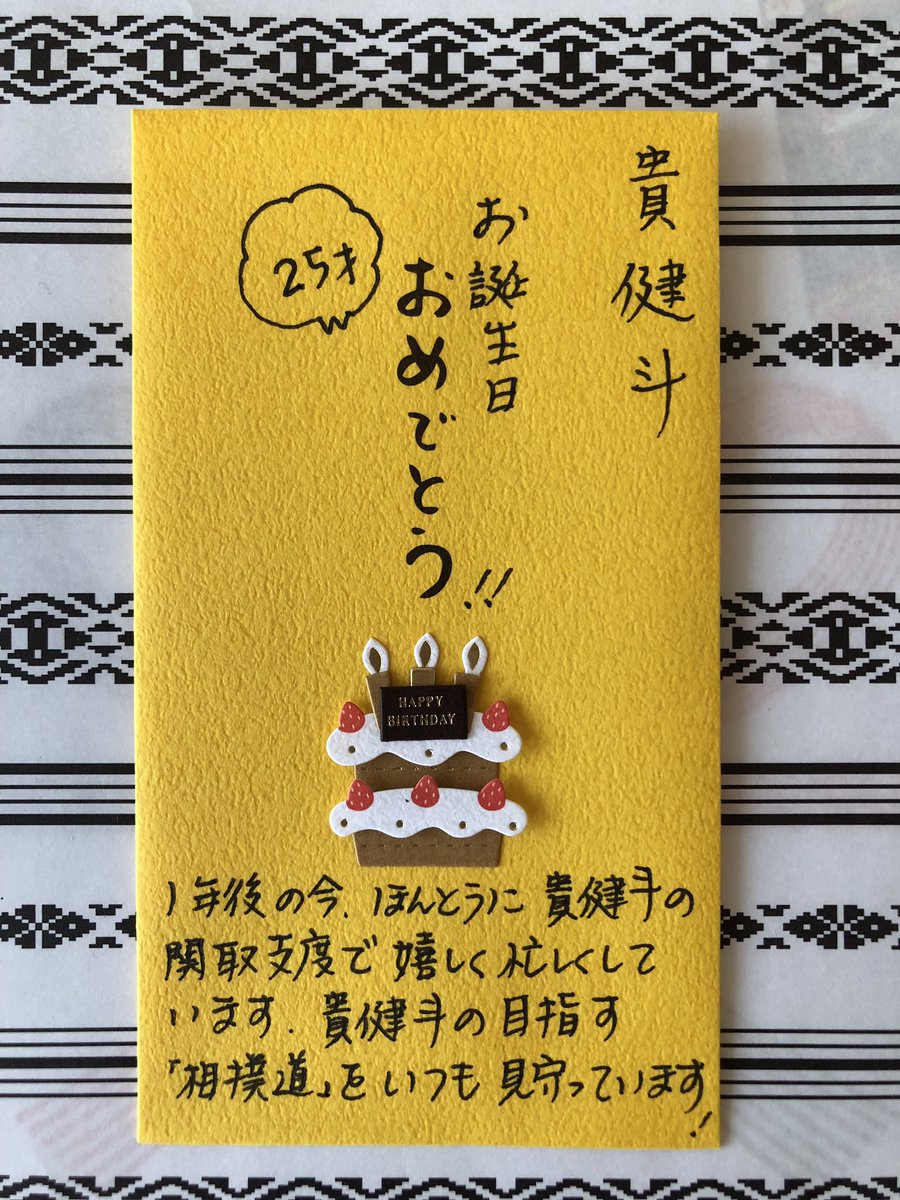 貴健斗
お誕生日
おめでとう!!
25才
HAPPY
BIRTHDAY
1年後の今、ほんとうに貴健斗の
関取支度で嬉しく忙しくして
います. 貴健斗の目指す
「相撲道」をいつも見守っています!